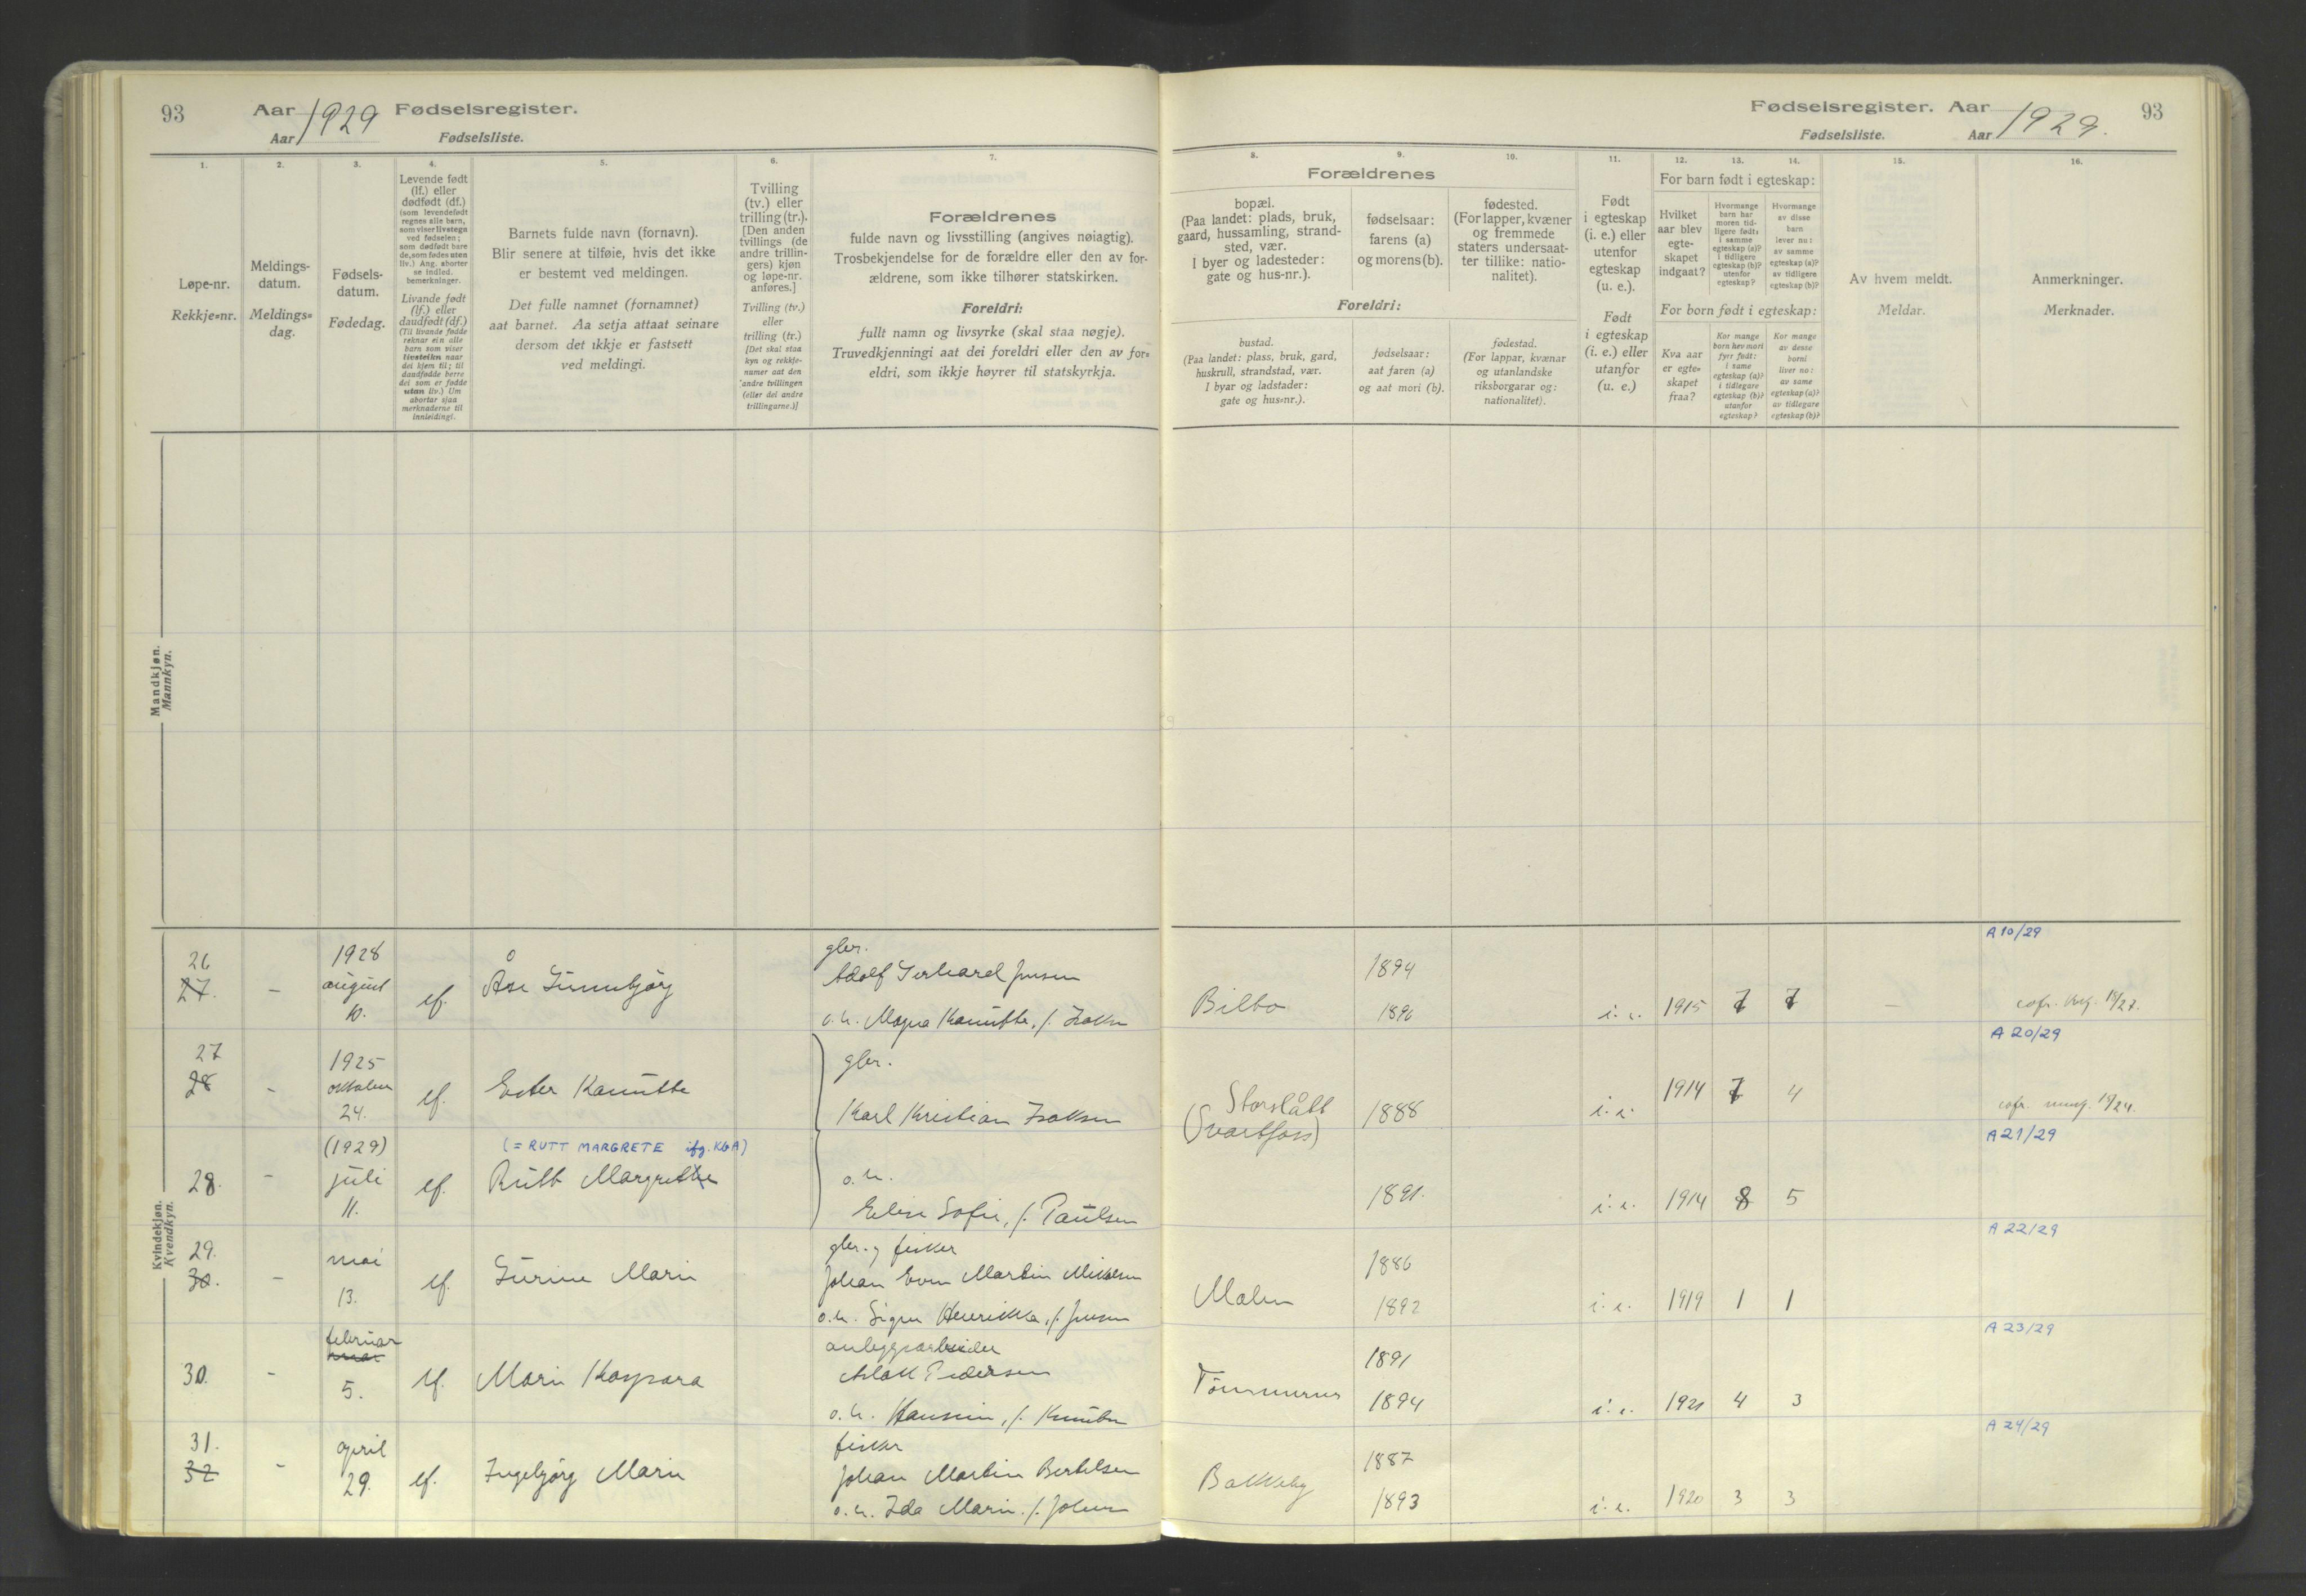 93
Aar 1929 Fødselsregister.
Aar Fødselsliste.
1. 2. 3. 4. 5. 6. 7.
Løpe-nr.
Rekkje=nr.
Meldings-
datum.
Meldings=
dag.
Fødsels-
datum.
Fødedag.
Levende født
(lf.) eller
dødfødt (df.)
(som levendefødt
regnes alle barn,
som viser livstegn
ved fødselen;
som dødfødt bare
de, som fødes uten
liv.) Ang. aborter
se indled.
bemerkninger.
Livande født
(lf.) eller
daudfødt (df.)
(Til livande fødde
reknar ein alle
barn som viser
livsteikn naar
dei kjem til; til
daudfødde berre
dei som er fødde
utan liv.) Um
abortar sjaa
merknaderne til
innleidingi.
Barnets fulde navn (fornavn).
Blir senere at tilføie, hvis det ikke
er bestemt ved meldingen.
Det fulle namnet (fornamnet)
aat barnet. Aa setja attaat seinare
dersom det ikkje er fastsett
ved meldingi.
Tvilling
(tv.) eller
trilling (tr.).
[Den anden
tvillings (de
andre trillin-
gers) kjøn
og løpe-nr.
anføres.]
Tvilling (tv.)
eller
trilling (tr.)
[Det skal staa
kyn og rekkje-
numer aat den
andre tvillingen
(eller dei andre
trillingarne.)]
Forældrenes
fulde navn og livsstilling (angives nøiagtig).
Trosbekjendelse for de forældre eller den av for-
ældrene, som ikke tilhører statskirken.
Foreldri:
fullt namn og livsyrke (skal staa nøgje).
Truvedkjenningi aat dei foreldri eller den av for=
eldri, som ikkje høyrer til statskyrkja.
Mandkjøn.
Mannkyn.
Kvindekjøn.
Kvendkyn.
26
27. - 1928 august 10. lf. Åse Gunnbjørg
gbr.
Adolf Gerhard Jensen
o. h. Magna Kanutte, f.
27
28 - 1925 oktober 24. lf. Ester Kanutte
gbr.
Karl Kristian Isaksen
28. - (1929) juli 11. lf.
(= RUTT MARGRETE ifg. KbA)
Rutt Margrethe
o. h.
Elise Sofie, f. Paulsen
29.
30. - mai 13. lf. Gurine Marie
gbr. og fisker
Johan Even Martin Mikalsen
o. h. Signe Henrikka, f. Jensen
30. - februar mai 5. lf. Marie Kaspara
anleggsarbeider
Aslak Pedersen
o. h. Hansine, f.
31.
32 - april 29. lf. Ingebjørg Marie
fisker
Johan Martin Bertelsen
o. h. Ida Marie, f.
Fødselsregister. Aar 1929. 93
Fødselsliste. Aar
8. 9. 10. 11. 12. 13. 14. 15. 16.
Forældrenes
bopæl.
(Paa landet: plads, bruk,
gaard, hussamling, strand-
sted, vær.
I byer og ladesteder:
gate og hus-nr.).
fødselsaar:
farens (a)
og morens (b).
fødested.
(For lapper, kvæner
og fremmede
staters undersaat-
ter tillike: natio-
nalitet).
Foreldri:
bustad.
(Paa landet: plass, bruk, gard,
huskrull, strandstad, vær.
I byar og ladstader:
gate og hus=nr.).
fødselsaar:
aat faren (a)
og aat mori (b).
fødestad.
(For lappar, kvænar
og utanlandske
riksborgarar og:
nationalitet).
Født
i egteskap
(i. e.) eller
utenfor
egteskap
(u. e.).
Født
i egteskap
(i. e.) eller
utanfor
(u. e.)
For barn født i egteskap:
Hvilket
aar blev
egte-
skapet
indgaat?
Hvormange
barn har
moren tid-
ligere født:
i samme
egteskap (a)?
i tidligere
egteskap (b)?
utenfor
egteskap?
Hvormange
av disse
barn
lever nu:
av samme
egteskap (a)?
av tidligere
egteskap (b)?
For born født i egteskap:
Kva aar
er egte=
skapet
fraa?
Kor mange
born hev mori
fyrr født:
i same
egteskap (a)?
i tidlegare
egteskap (b)?
utanfor
egteskap?
Kor mange
av desse
borni
liver no:
av same
egteskap (a)?
av tidlegare
egteskap (b)?
Av hvem meldt.
Meldar.
Anmerkninger.
Merknader.
A 10/29
Bilto 1894 1896 i. e. 1915 7 7 -
A 20/29
Storslått
(Svartfoss) 1888 i. e. 1914 7 4
A 21/29
1891. i. e. 1914 8 5
A 22/29
1886
1892 i. e. 1919 1 1
A 23/29
1891
1894 i. e. 1921 4 3
A 24/29
Bakkeby 1887
1893 i. e. 1920 3 3